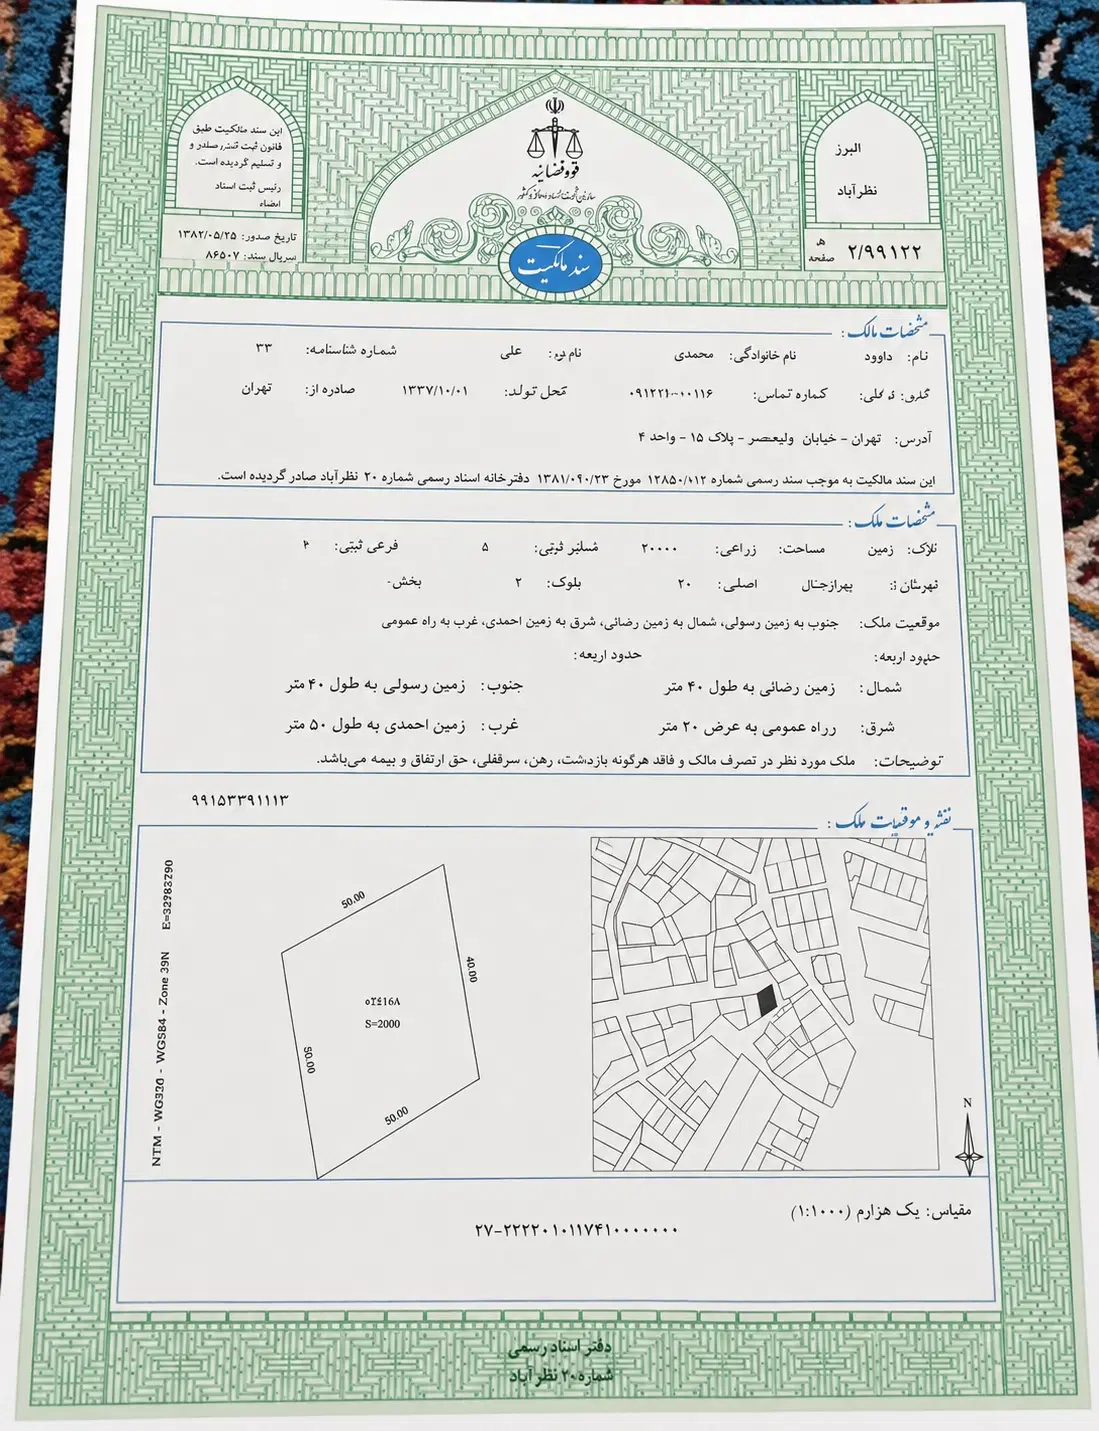 البرز
نظرآباد
۲/۹۹۱۲۲
صفحه
قوه قضائیه
سند مالکیت
این سند مالکیت طبق
قانون ثبت صادر و
و تسلیم گردیده است.
رئیس ثبت اسناد
امضاء
تاریخ صدور: ۱۳۸۲/۰۵/۲۵
سریال سند: ۸۶۵۰۷
مشخصات مالک:
نام: داوود نام خانوادگی: محمدی علی شماره شناسنامه: ۳۳
کماره تماس: محل تولد: ۱۳۳۷/۱۰/۰۱ صادره از: تهران
آدرس: تهران - خیابان ولیعصر - پلاک ۱۵ - واحد ۴
این سند مالکیت به موجب سند رسمی شماره مورخ دفترخانه اسناد رسمی شماره ۲۰ نظرآباد صادر گردیده است.
مشخصات ملک:
زمین مساحت: زراعی: ۲۰۰۰۰ ۵ فرعی ثبتی: ۴
اصلی: ۲۰ بلوک: ۲ بخش-
موقعیت ملک: جنوب به زمین رسولی، شمال به زمین رضائی، شرق به زمین احمدی، غرب به راه عمومی
حدود اربعه: حدود اربعه:
شمال: زمین رضائی به طول ۴۰ متر جنوب: زمین رسولی به طول ۴۰ متر
شرق: رراه عمومی به عرض ۲۰ متر غرب: زمین احمدی به طول ۵۰ متر
توضیحات: ملک مورد نظر در تصرف مالک و فاقد هرگونه بازدشت، رهن، سرقفلی، حق ارتفاق و بیمه می‌باشد.
۹۹۱۵۳۳۹۱۱۱۳
نقشه و موقعیات ملک:
50.00
40.00
S=2000
50.00
50.00
NTM - WGS84 - Zone 39N
N
مقیاس: یک هزارم (۱:۱۰۰۰)
۲۷-۲۲۲۲۰۱۰۱۱۷۴۱۰۰۰۰۰۰۰
دفتر اسناد رسمی
شماره ۲۰ نظرآباد